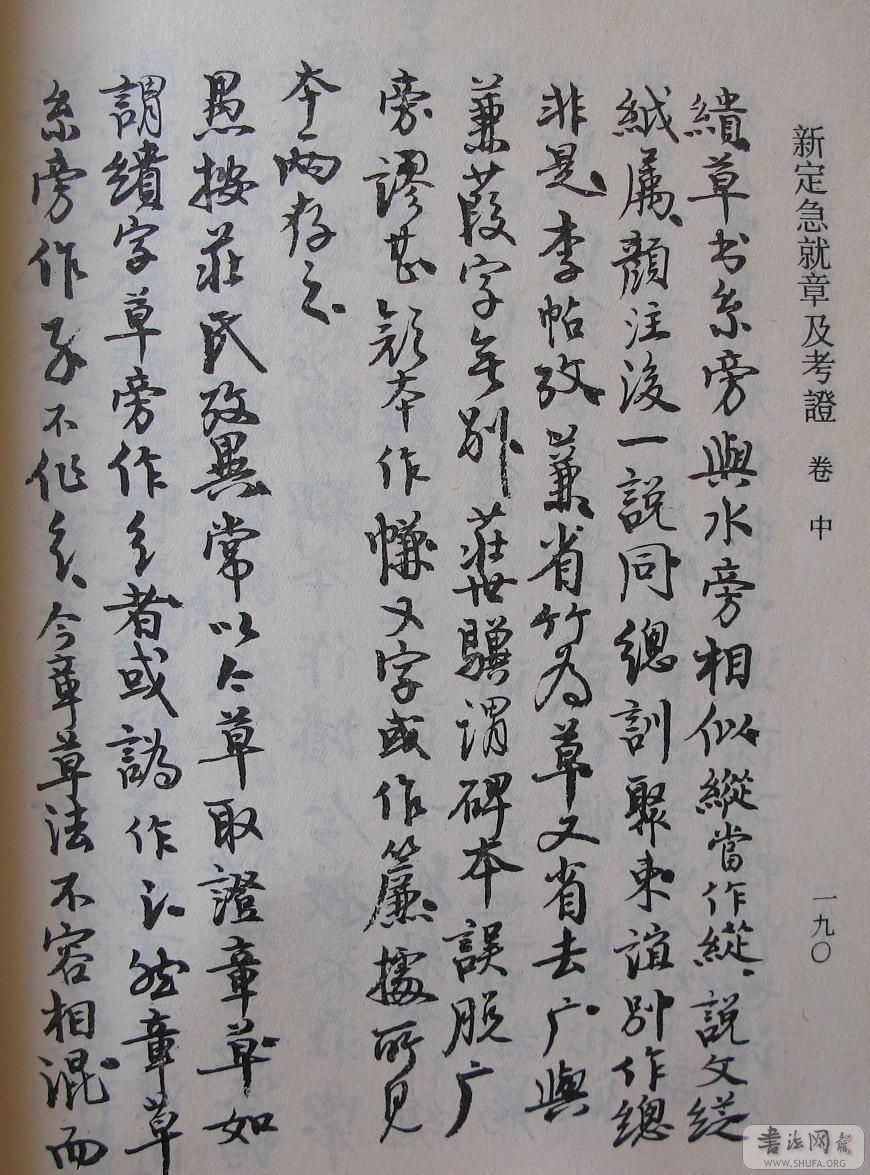 新定急就章及考證 卷中
一九〇
繢草书糸旁與水旁相似縱當作縰說文縰
絨属顏注後一說同總訓聚束誼別作總
非是李帖攷蒹省竹為草又省去广與
蒹葭字无别莊世驥谓碑本誤脱广
旁謬甚顏本作慊又字或作簾據所見
本兩存之
愚按莊氏攷異常以今草取證章草如
謂繢字草旁作者或譌作然章草
糸旁作不作今章草法不容相混而
書法网
WWW.SHUFA.ORG